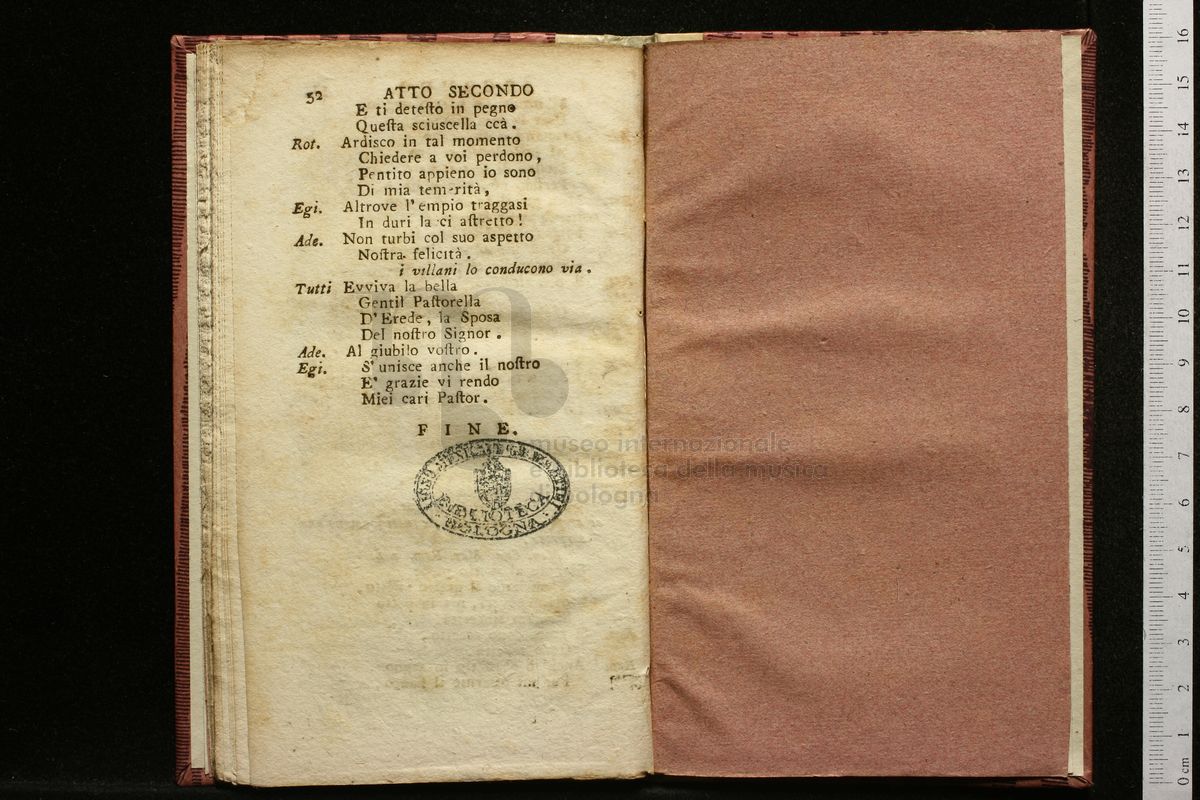 52 ATTO SECONDO
E ti detesto in pegno
Questa sciuscella ccà.
Rot. Ardisco in tal momento
Chiedere a voi perdono,
Pentito appieno io sono
Di mia temerità,
Egi. Altrove l'empio traggasi
In duri la ci astretto!
Ade. Non turbi col suo aspetto
Nostra felicità.
i villani lo conducono via.
Tutti Evviva la bella
Gentil Pastorella
D'Erede, la Sposa
Del nostro Signor.
Ade. Al giubilo vostro.
Egi. S'unisce anche il nostro
E' grazie vi rendo
Miei cari Pastor.
FINE.
LICEO MUSICALE
BIBLIOTECA
BOLOGNA
museo internazionale
e biblioteca della musica
di bologna
0 cm 1 2 3 4 5 6 7 8 9 10 11 12 13 14 15 16